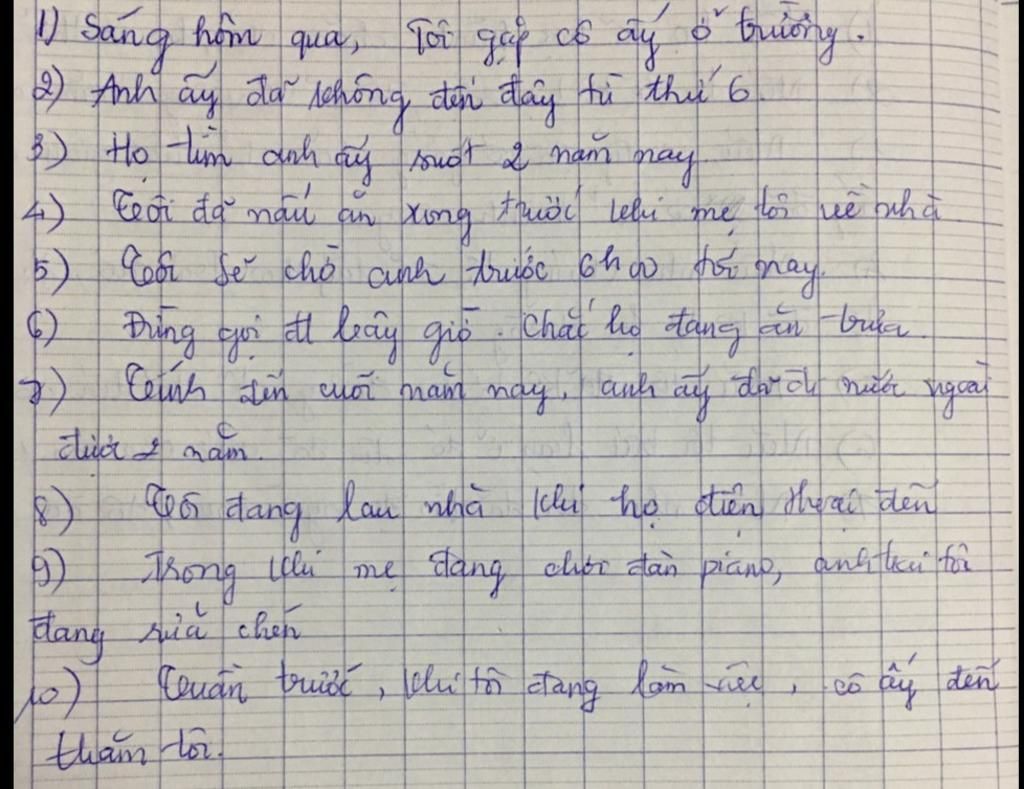 1) Sáng hôm qua, Tôi gặp cô ấy ở trường.
2) Anh ấy đã không đến đây từ thứ 6.
3) Họ tìm anh ấy suốt 2 năm nay.
4) Tôi đã nấu ăn xong trước khi mẹ tôi về nhà
5) Tôi sẽ chờ anh trước 6h00 tối nay.
6) Đừng gọi đt bây giờ. Chắc họ đang ăn trưa.
7) Tính đến cuối năm nay, anh ấy đã ở nước ngoài
được 2 năm.
8) Tôi đang lau nhà khi họ điện thoại đến
9) Trong khi mẹ đang chơi đàn piano, anh trai tôi
đang rửa chén
10) Tuần trước, khi tôi đang làm việc, cô ấy đến
thăm tôi.